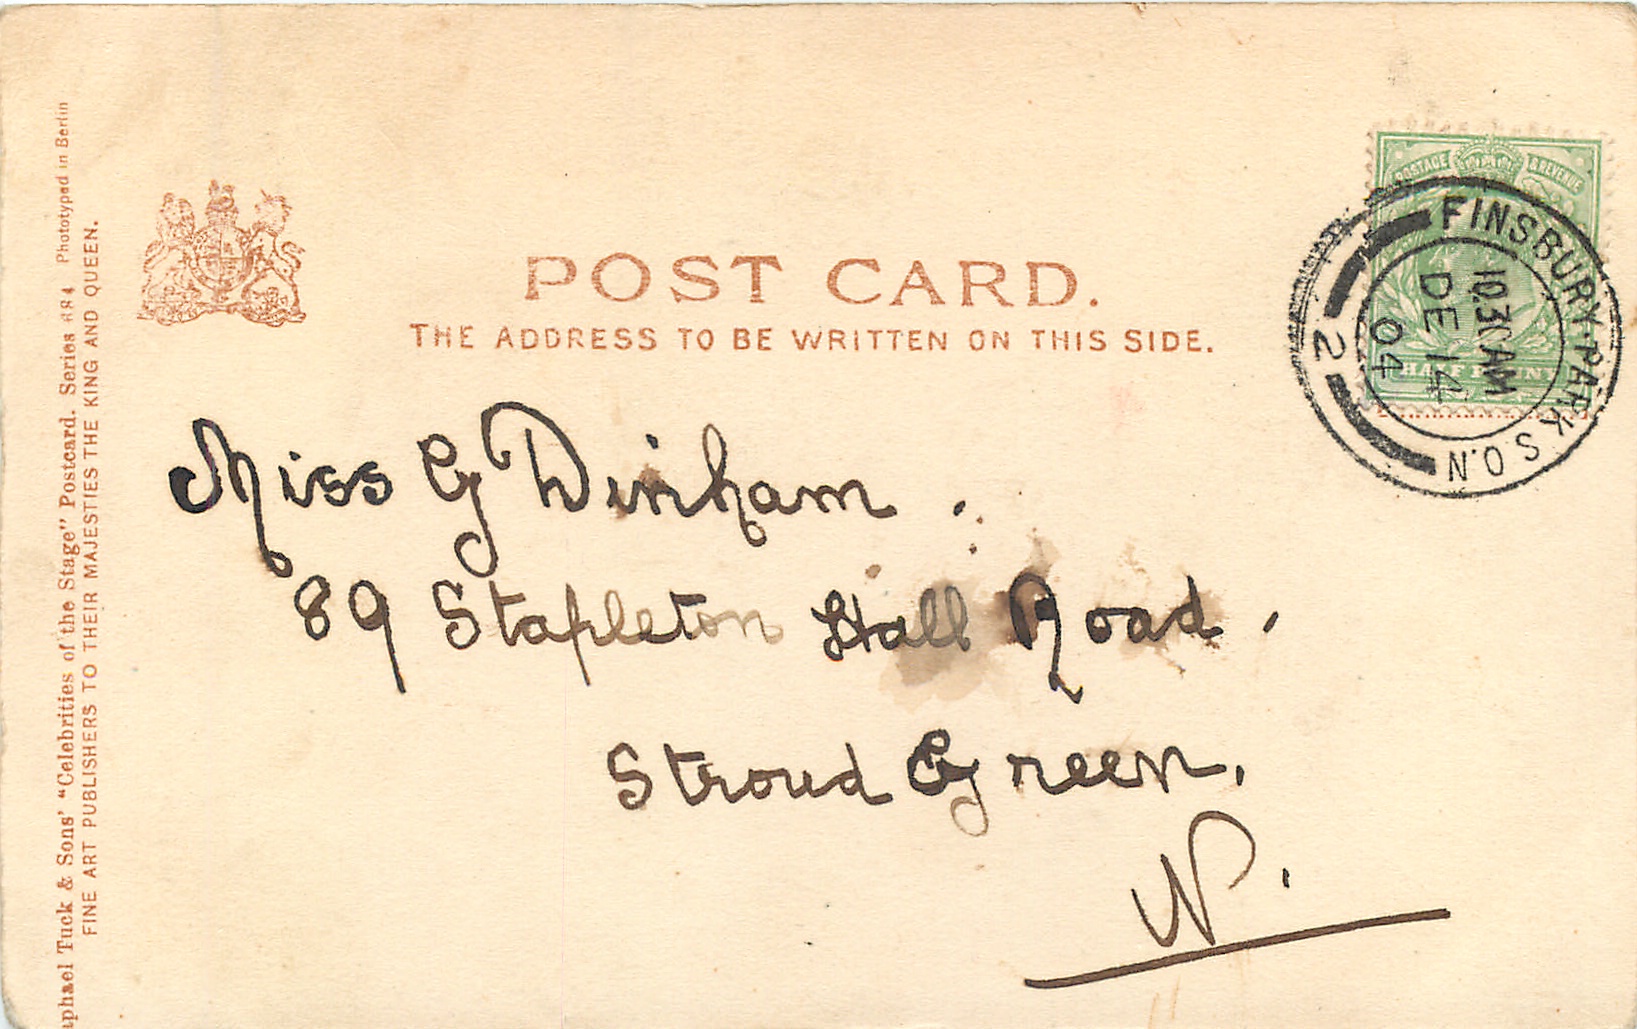 POST CARD.
THE ADDRESS TO BE WRITTEN ON THIS SIDE.
POSTAGE & REVENUE
HALF PENNY
FINSBURY PARK S.O.N
10.30AM
DE 14
04
2
Miss G Dinham.
89 Stapleton Hall Road,
Stroud Green,
N.
aphael Tuck & Sons' "Celebrities of the Stage" Postcard. Series 884 Phototyped in Berlin
FINE ART PUBLISHERS TO THEIR MAJESTIES THE KING AND QUEEN.